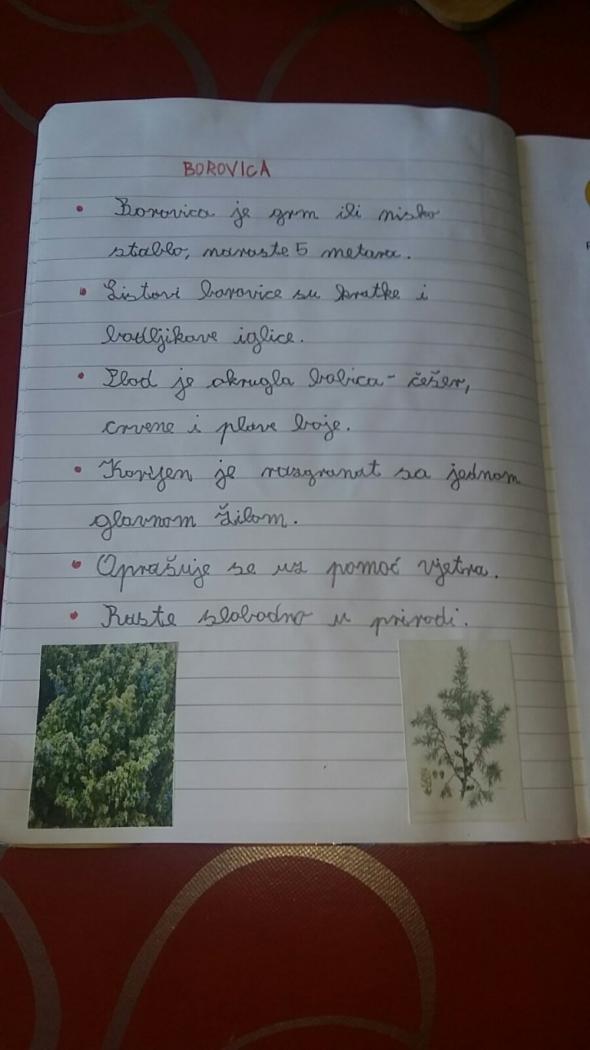 BOROVICA
Borovica je grm ili nisko
stablo, naraste 5 metara.
Listovi borovice su kratke i
bodljikave iglice.
Plod je okrugla bobica - češer,
crvene i plave boje.
Korijen je razgranat sa jednom
glavnom žilom.
Oprašuje se uz pomoć vjetra.
Raste slobodno u prirodi.